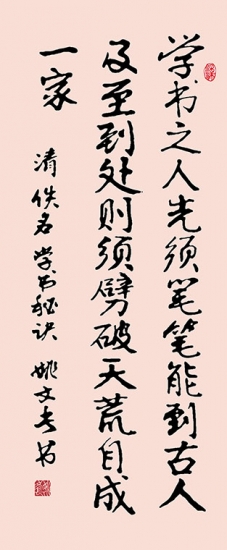 学书之人先须笔笔能到古人
及至到处则须劈破天荒自成
一家
清佚名学书秘诀 姚文长书